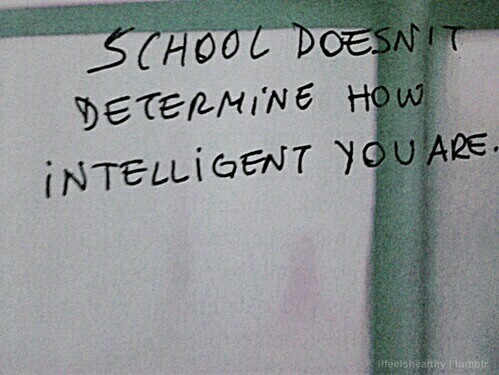 SCHOOL DOESN'T
DETERMINE HOW
INTELLIGENT YOU ARE.
itfeelshealthy | tumblr